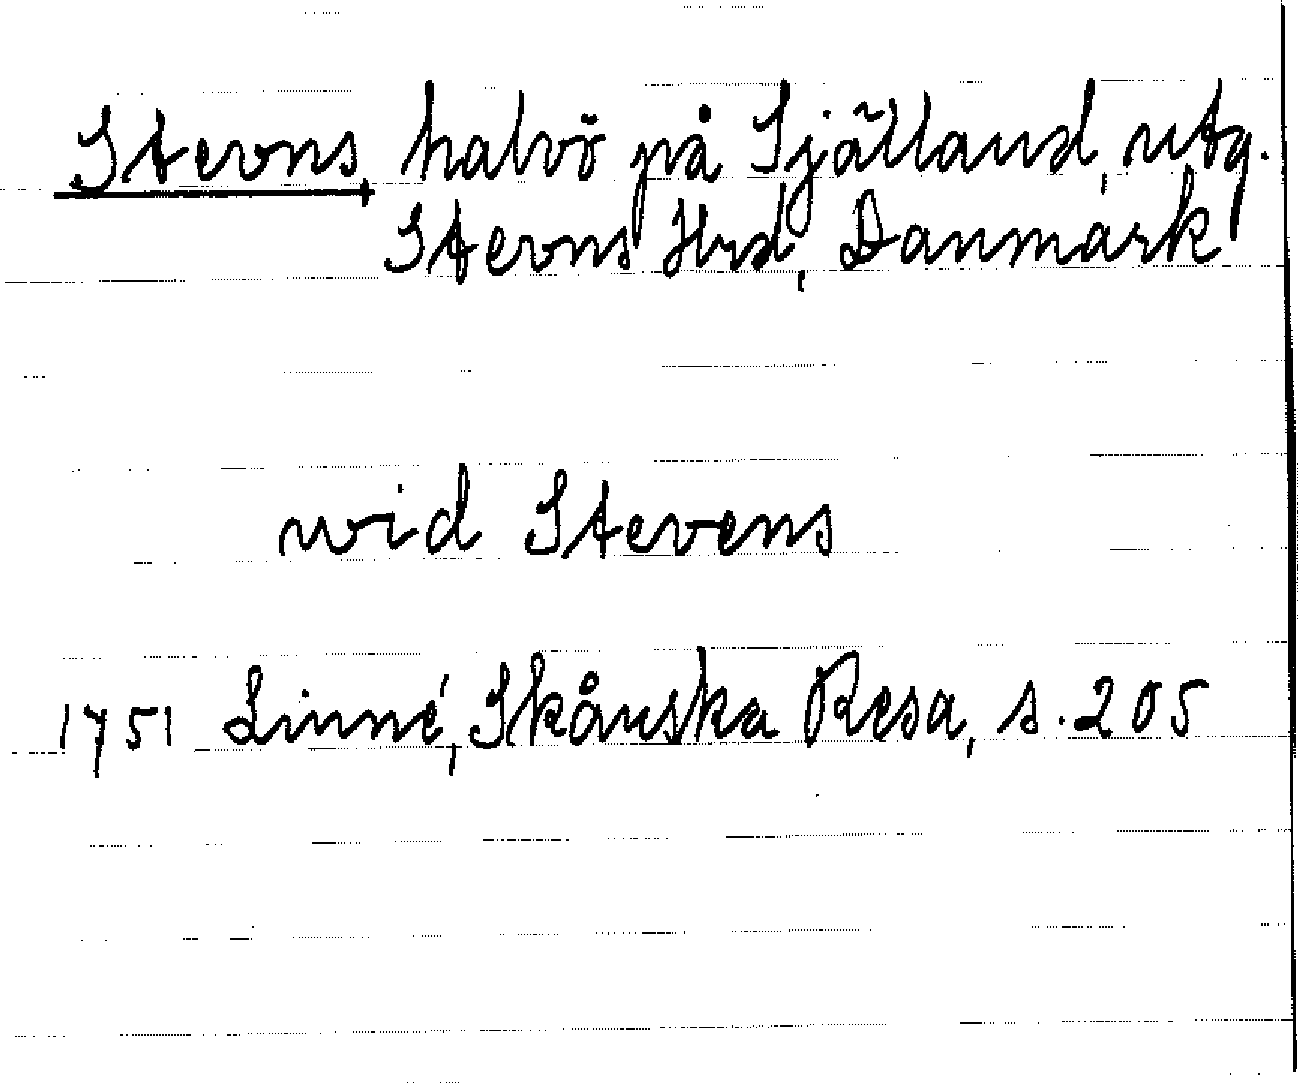 Stevns, halvö på Själland, utg.
Stevns Hrd, Danmark
wid Stevens
1751 Linné, Skånska Resa, s. 205